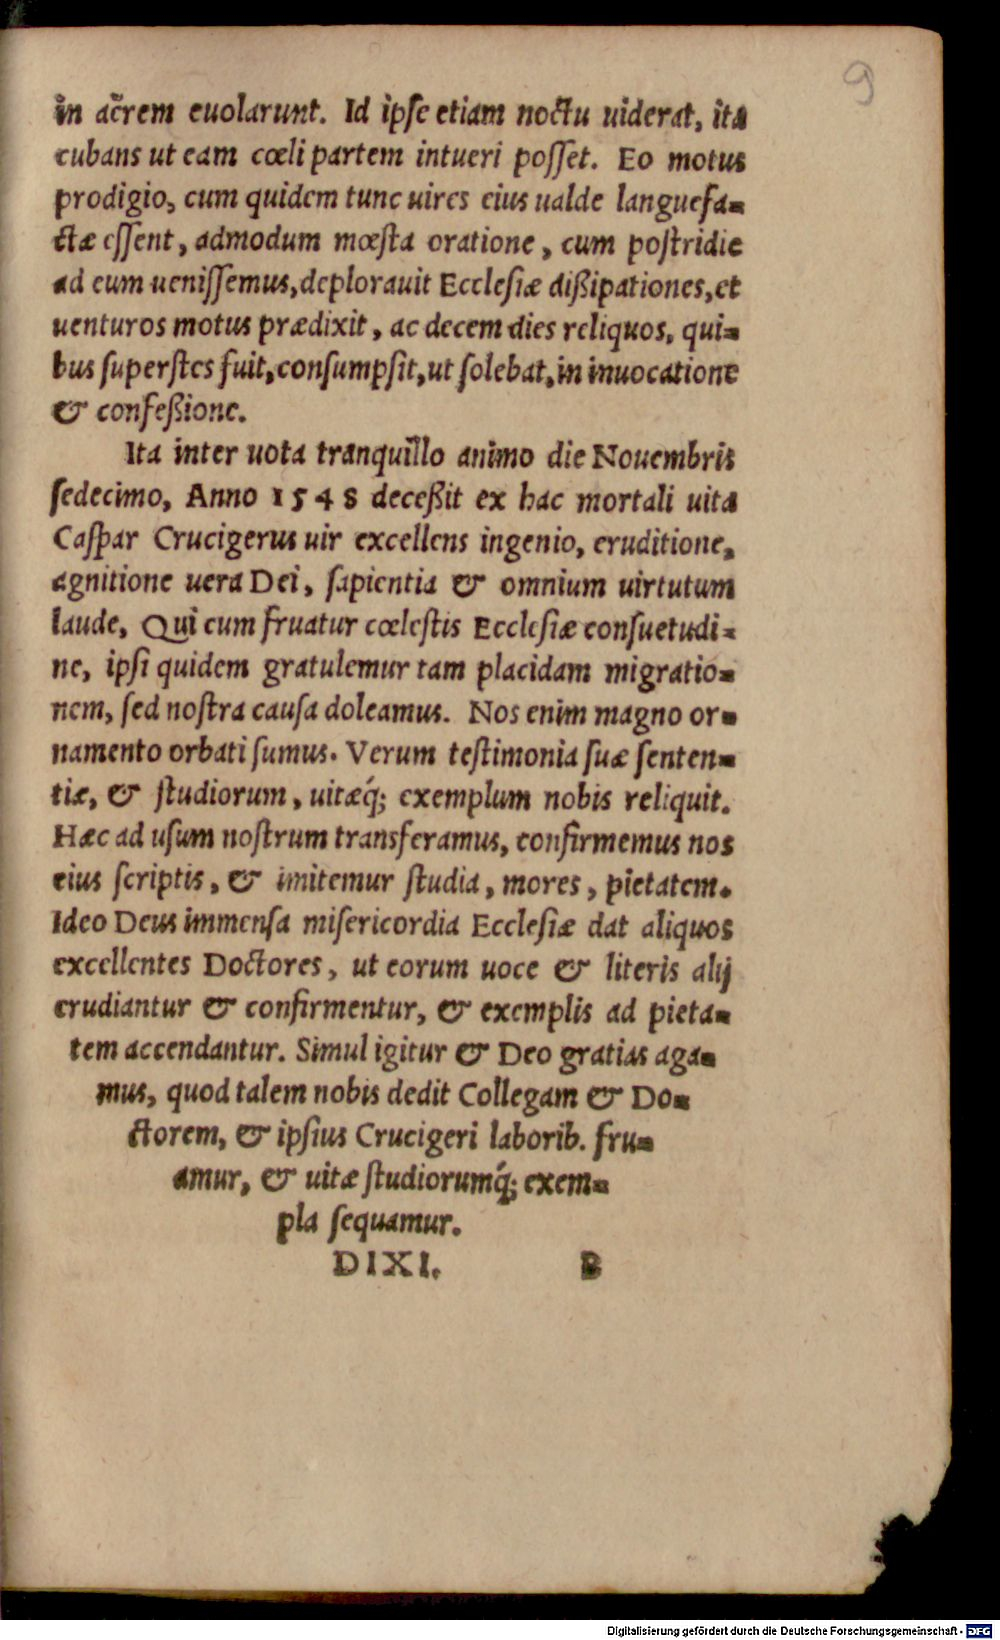 9
in aërem euolarunt. Id ipse etiam noctu uiderat, ita
cubans ut eam cœli partem intueri posset. Eo motus
prodigio, cum quidem tunc uires eius ualde languefa-
ctæ essent, admodum mœsta oratione, cum postridie
ad eum uenissemus, deplorauit Ecclesiæ dißipationes, et
uenturos motus prædixit, ac decem dies reliquos, qui-
bus superstes fuit, consumpsit, ut solebat, in inuocatione
& confeßione.
Ita inter uota tranquillo animo die Nouembris
sedecimo, Anno 1548 deceßit ex hac mortali uita
Caspar Crucigerus uir excellens ingenio, eruditione,
agnitione uera Dei, sapientia & omnium uirtutum
laude, Qui cum fruatur cœlestis Ecclesiæ consuetudi-
ne, ipsi quidem gratulemur tam placidam migratio-
nem, sed nostra causa doleamus. Nos enim magno or-
namento orbati sumus. Verum testimonia suæ senten-
tiæ, & studiorum, uitæq́; exemplum nobis reliquit.
Hæc ad usum nostrum transferamus, confirmemus nos
eius scriptis, & imitemur studia, mores, pietatem.
Ideo Deus immensa misericordia Ecclesiæ dat aliquos
excellentes Doctores, ut eorum uoce & literis alij
erudiantur & confirmentur, & exemplis ad pieta-
tem accendantur. Simul igitur & Deo gratias aga-
mus, quod talem nobis dedit Collegam & Do-
ctorem, & ipsius Crucigeri laborib. fru-
amur, & uitæ studiorumq́; exem-
pla sequamur.
DIXI. B
Digitalisierung gefördert durch die Deutsche Forschungsgemeinschaft - DFG